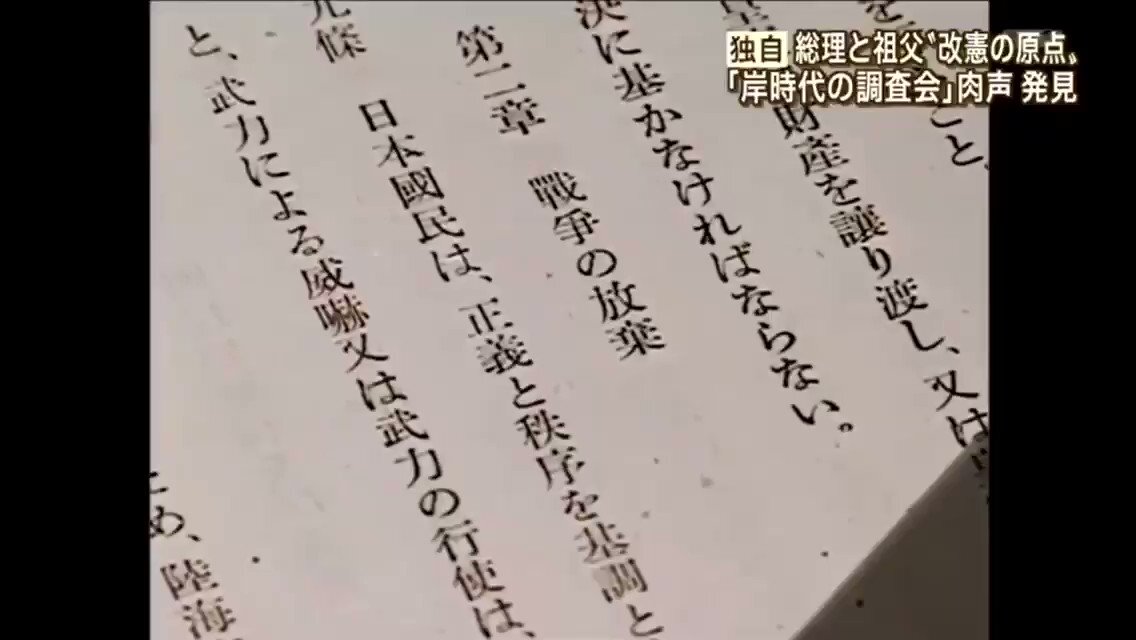 独自 総理と祖父〝改憲の原点〟
「岸時代の調査会」肉声 発見
こと、
財産を譲り渡し、又は
決に基かなければならない。
第二章 戰爭の放棄
九條 日本國民は、正義と秩序を基調と
と、武力による威嚇又は武力の行使は、
ため、陸海